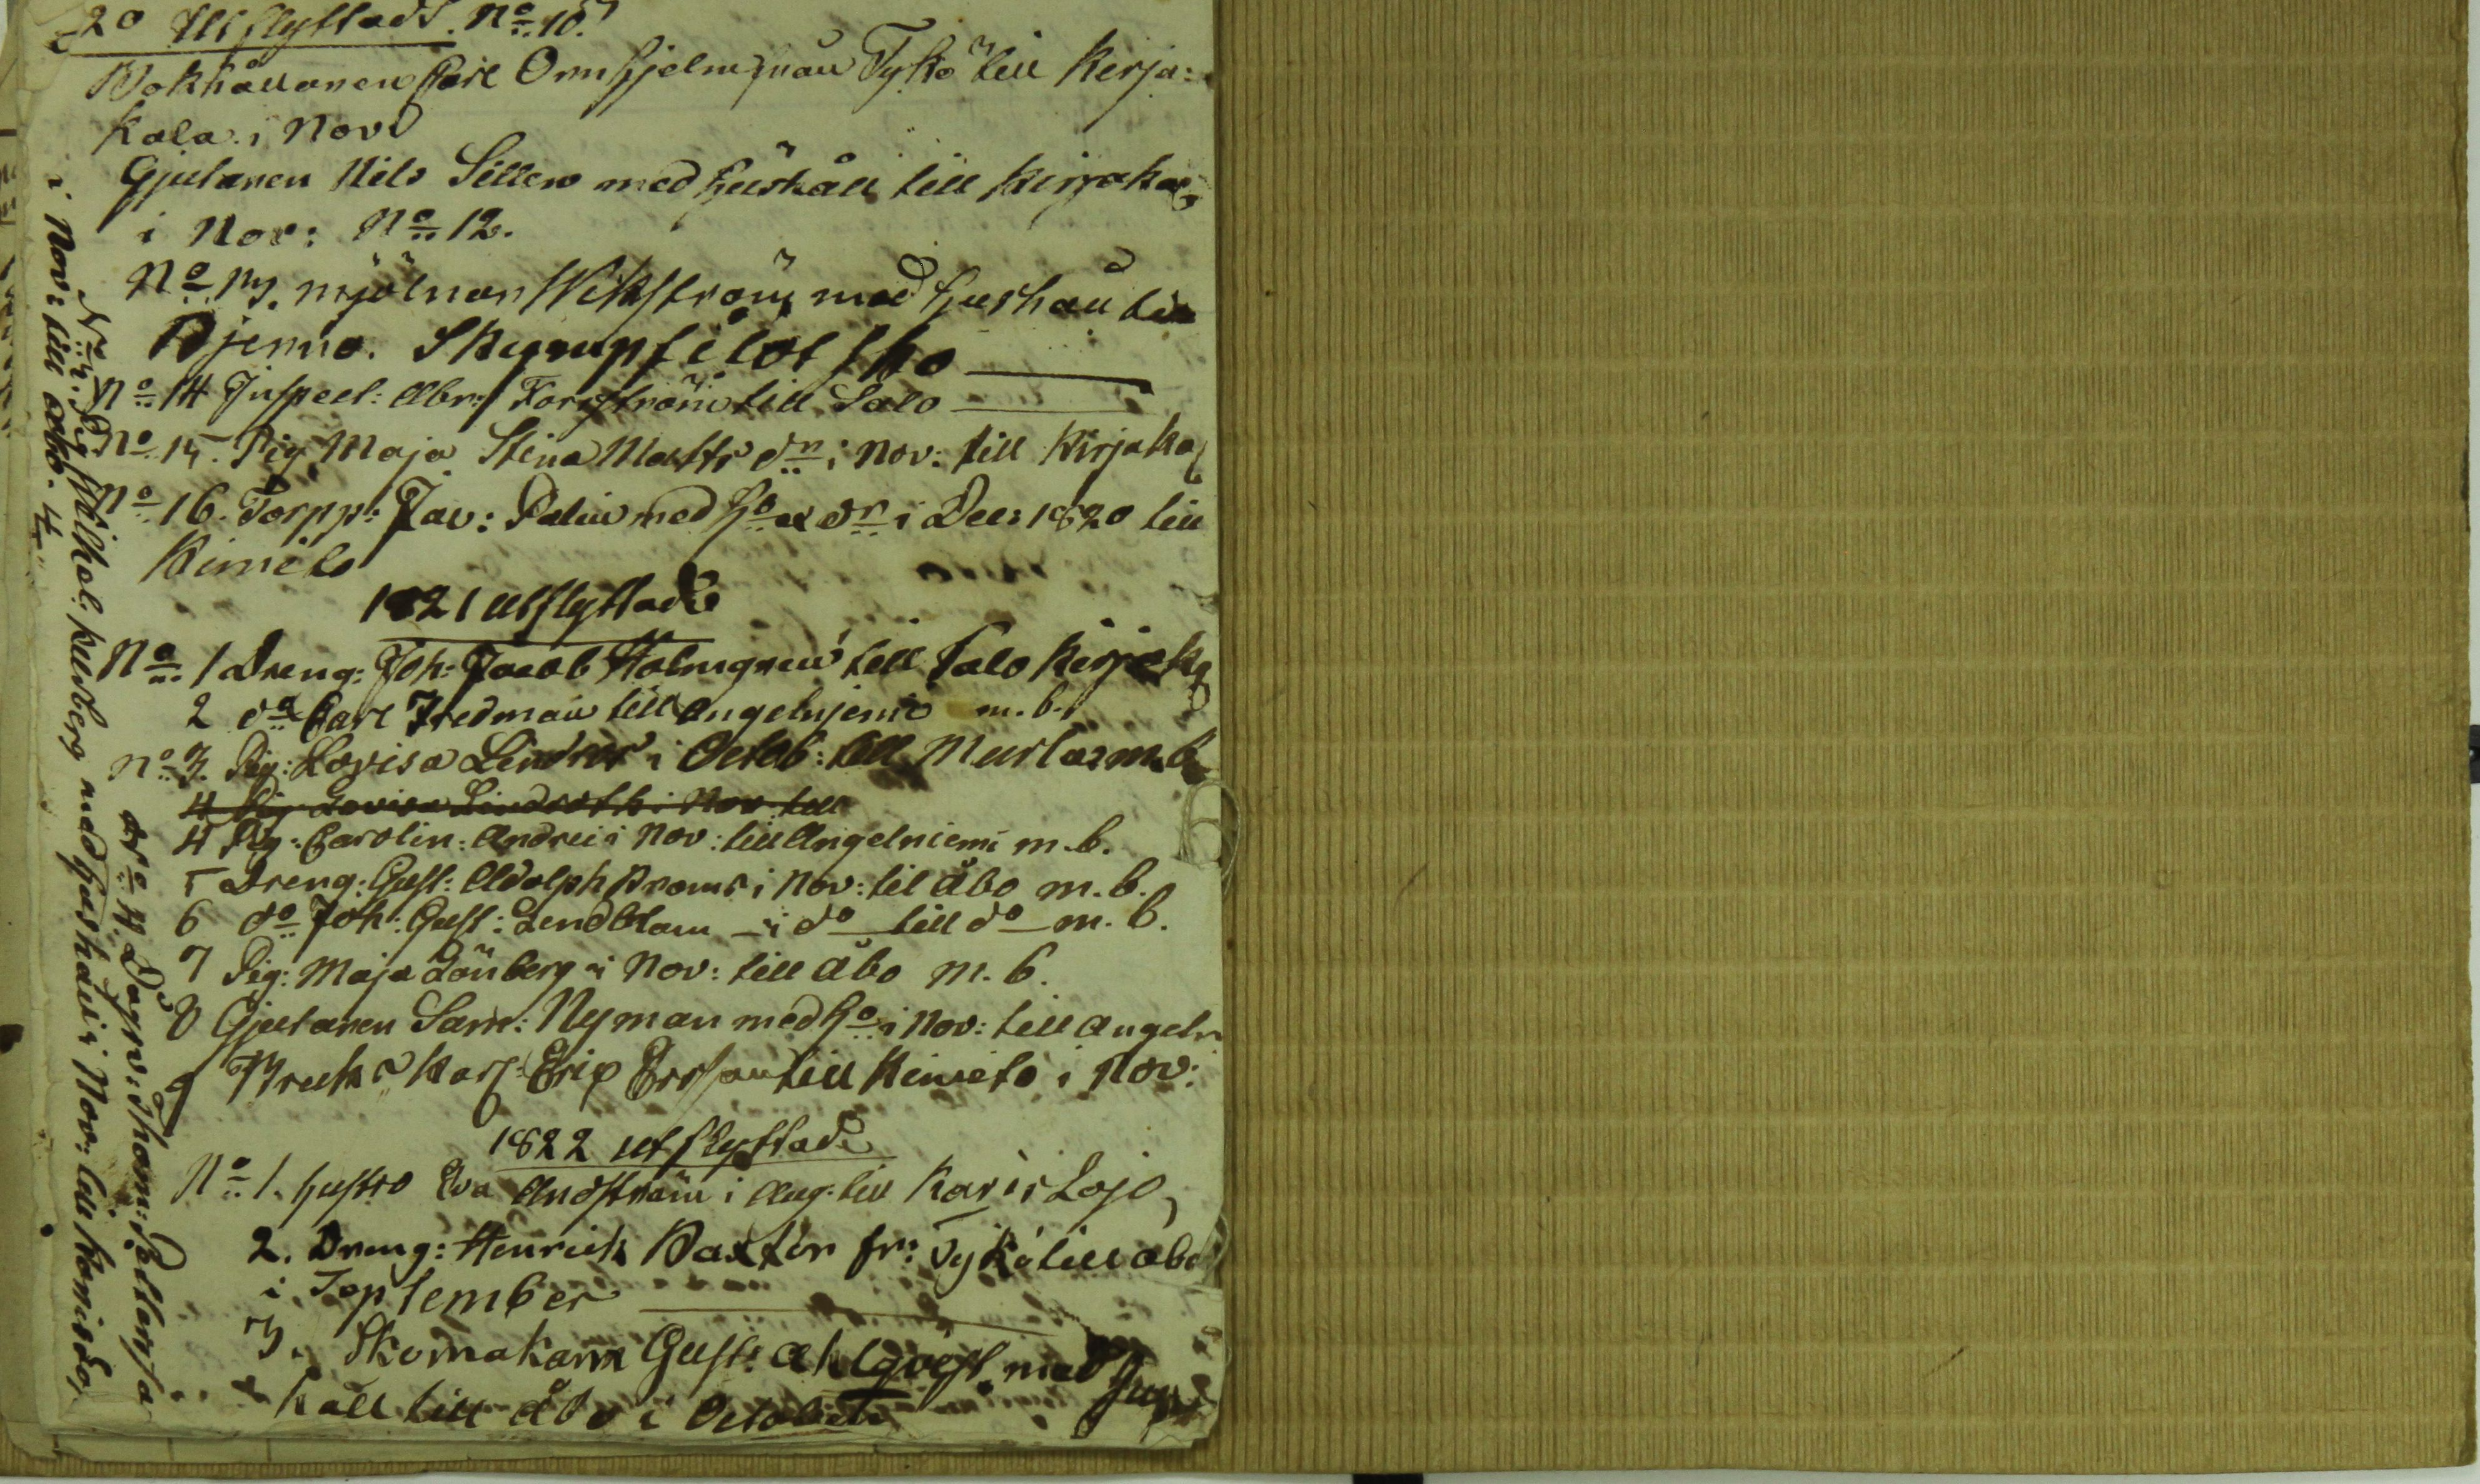 20 Utflyttade. No 10.
Bokhållaren Carl Ornhjelm från Tykö till Kirja:
kala i Nov
Gjutaren Nils Sillen med hushåll till Kirjakal
i Nov: No 12.
No 13. mjölnar Wikström med hushåll till
Bjerno.
No 14 Inspect: Abr: Forsström till Salo
No 15. Pig Maja Stina Matts dr i Nov: till Kirjaka
No 16. Torpp: Zav: Palin med ho & dr i Dec: 1820 till
Kimito
1821 utflyttade
No 1 Dreng: Joh: Jacob Holmgren till Salo Kirjak
2 do Carl Fredman till Angelnjemi m. b.
No 3. Pig: Lovisa Lindros i Octob: till Murla m. b.
4 Pig Lovisa i Nov till
4 Pig: Carolin: Andrei i Nov: till Angelniemi m. b.
5 Dreng: Gust: Adolph Broms i Nov: til Åbo m. b.
6 do Joh: Gust: Lendblam – i do till do – m. b.
7 Pig: Maja Lönberg i Nov: till Åbo m. b.
8 Gjutaren Sam: Nyman med ho i Nov: till Angeln
9 Bruks karl: Eric Ersson till Kimito i Nov:
1822 utflyttade
No 1. hustro Eva Andström i Aug. till Karis Lojo,
2. Dreng: Henrich Baxter fr: Tykö till Åbo
i September
3. Skomakarn Gust: Ahlqvist med hus
håll till Åbo i October
No 3. Wilhel: med hushåll i Nov: till Karislo
No 4. Dagsv: Thom:
i Nov: till Åbo. 4